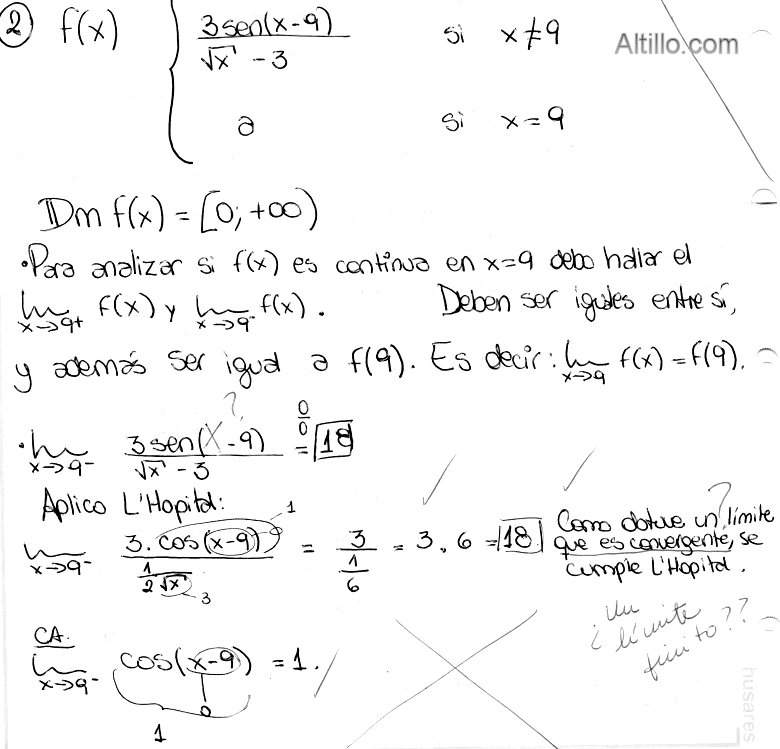 ② f(x) { 3sen(x-9) / √x - 3 si x≠9
a si x=9
Altillo.com
Dm f(x) = [0; +∞)
•Para analizar si f(x) es continua en x=9 debo hallar el
lim x→9+ f(x) y lim x→9- f(x). Deben ser iguales entre sí,
y además ser igual a f(9). Es decir: lim x→9 f(x) = f(9).
?
• lim x→9- 3sen(x-9) / √x - 3 = 0/0 18
Aplico L'Hopital:
lim x→9- 3.cos(x-9) 1 / 1/2√x 3 = 3 / 1/6 = 3.6 = 18
Como obtuve un límite
que es convergente, se
cumple L'Hopital.
?
¿un
límite
finito??
CA.
lim x→9- cos(x-9) = 1.
0
1
husares